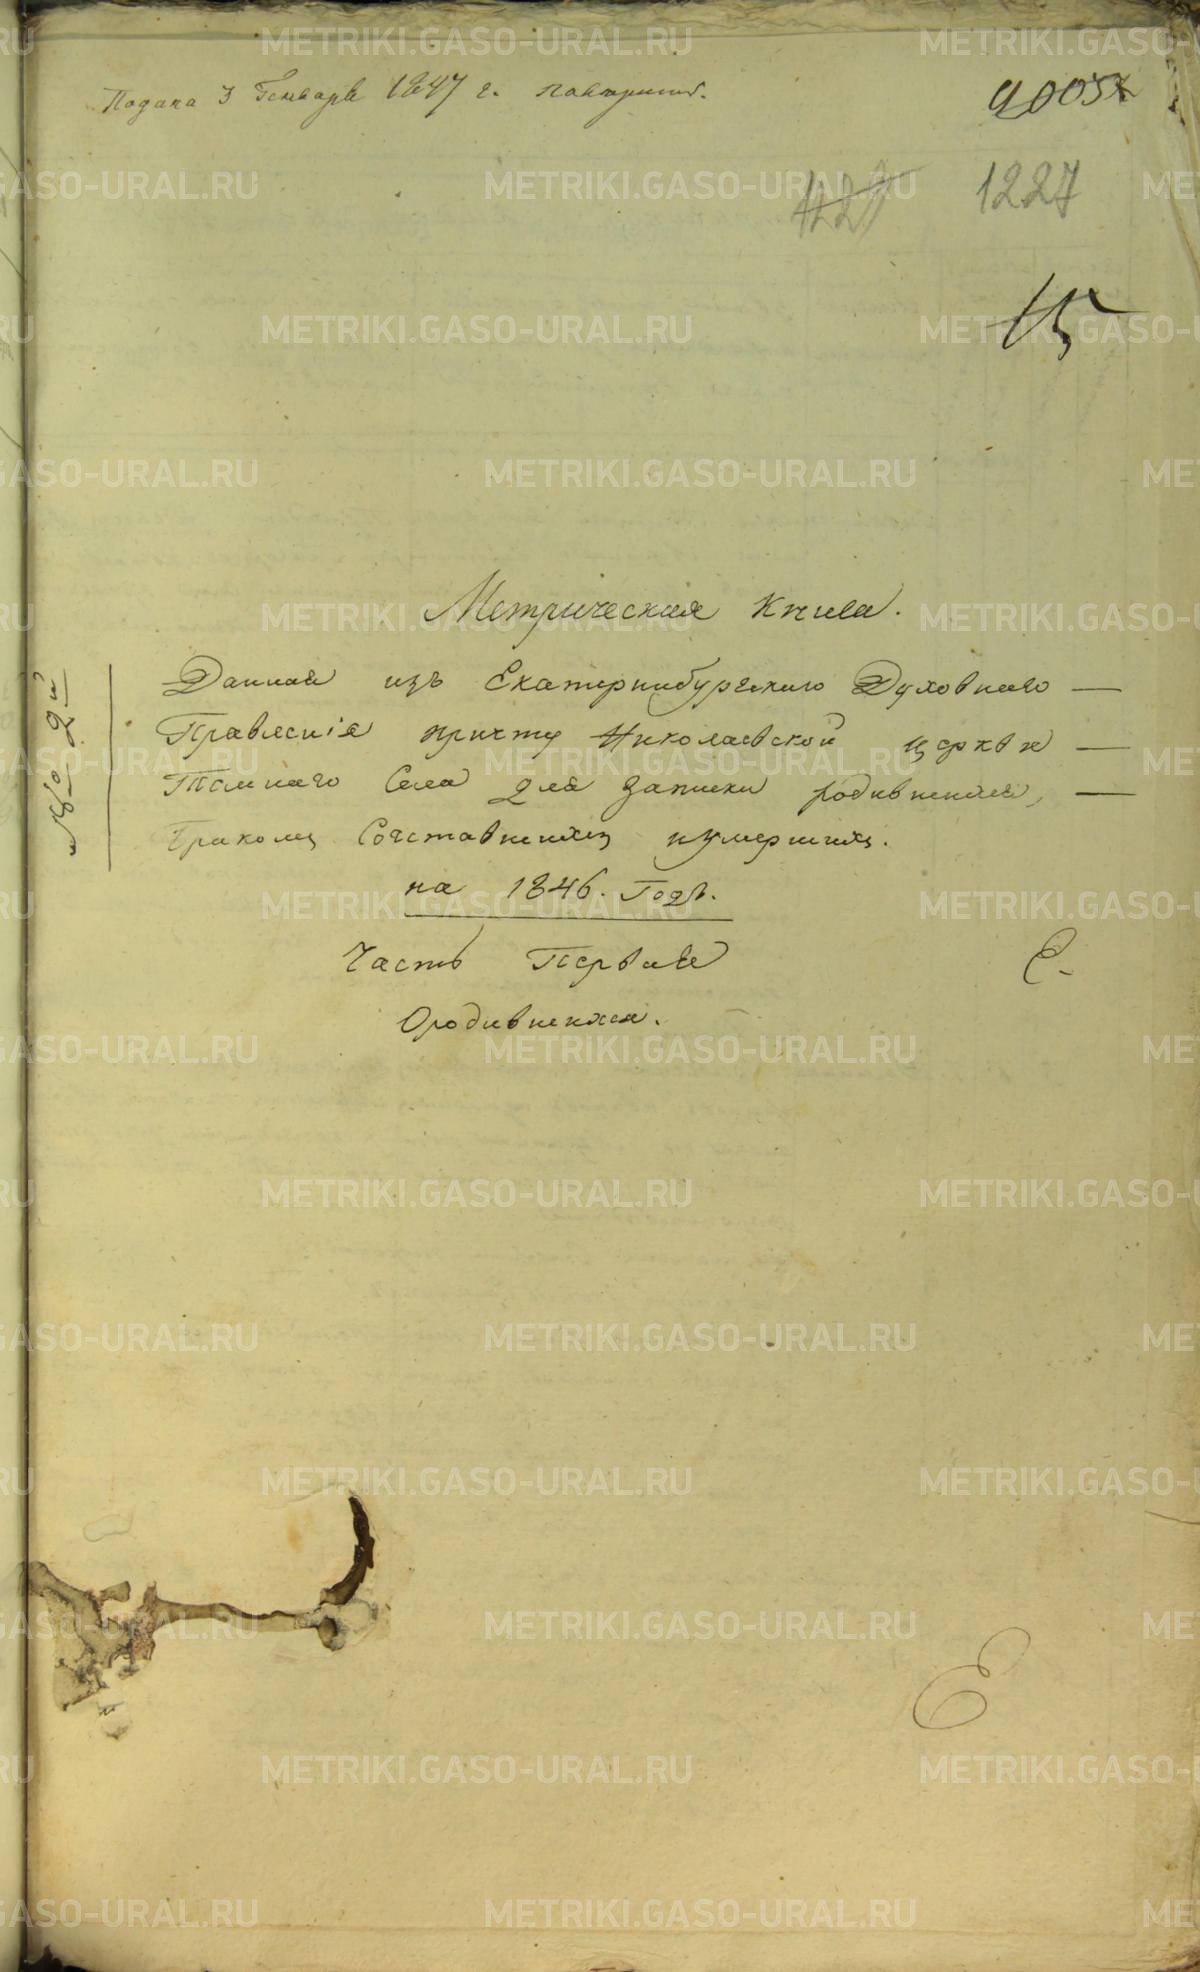 Подана 3 Генваря 1847 г.
1227
15
Метрическая Книга.
№ 2й
Данная изъ Екатеринбургскаго Духовнаго —
Правленія причту Николаевской церкви —
села для записки родившихся, —
бракомъ Сочетавшихся и умершихъ.
на 1846. Годъ.
Часть Первая
О родившихся.
Е.
Е
METRIKI.GASO-URAL.RU